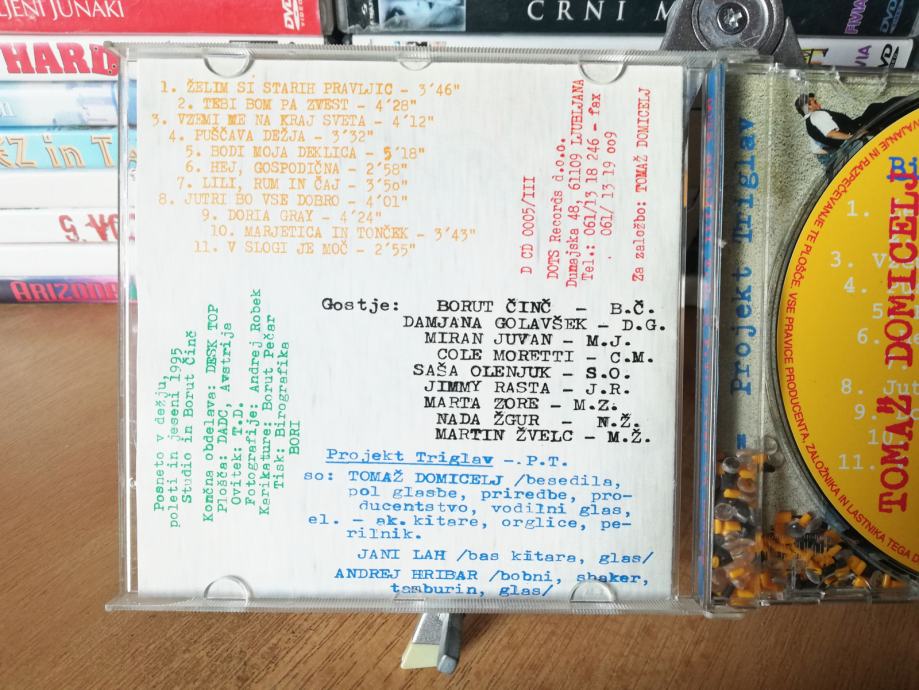 LJENI JUNAKI
DVD
CRNI M
DVD
HARD
VIA
DVD
Z in T
ARIZONA
1. ŽELIM SI STARIH PRAVLJIC - 3'46"
2. TEBI BOM PA ZVEST - 4'28"
3. VZEMI ME NA KRAJ SVETA - 4'12"
4. PUŠČAVA DEŽJA - 3'32"
5. BODI MOJA DEKLICA - 5'18"
6. HEJ, GOSPODIČNA - 2'58"
7. LILI, RUM IN ČAJ - 3'50"
8. JUTRI BO VSE DOBRO - 4'01"
9. DORIA GRAY - 4'24"
10. MARJETICA IN TONČEK - 3'43"
11. V SLOGI JE MOČ - 2'55"
D CD 0005/III
DOTS Records d.o.o.
Dunajska 48, 61109 LJUBLJANA
Tel.: 061/13 18 246 - fax
061/ 13 19 009
Za založbo: TOMAŽ DOMICELJ
Gostje: BORUT ČINČ - B.Č.
DAMJANA GOLAVŠEK - D.G.
MIRAN JUVAN - M.J.
COLE MORETTI - C.M.
SAŠA OLENJUK - S.O.
JIMMY RASTA - J.R.
MARTA ZORE - M.Z.
NADA ŽGUR - N.Ž.
MARTIN ŽVELC - M.Ž.
Posneto v dežju,
poleti in jeseni 1995
Studio in Borut Činč
Končna obdelava: DESK TOP
Plošča: DADC, Avstrija
Ovitek: T.D.
Fotografije: Andrej Robek
Karikature: Borut Pečar
Tisk: Birografika
BORI
Projekt Triglav -.P.T.
so: TOMAŽ DOMICELJ /besedila,
pol glasbe, priredbe, pro-
ducentstvo, vodilni glas,
el. - ak. kitare, orglice, pe-
rilnik.
JANI LAH /bas kitara, glas/
ANDREJ HRIBAR /bobni, shaker,
tamburin, glas/
Projekt Triglav
TOMAŽ DOMICELJ
VAJANJE IN RAZPEČEVANJE TE PLOŠČE. VSE PRAVICE PRODUCENTA, ZALOŽNIKA IN LASTNIKA TEGA D
1.
3. Vz
4.
5
6.
8. Jut
9.
10
11.